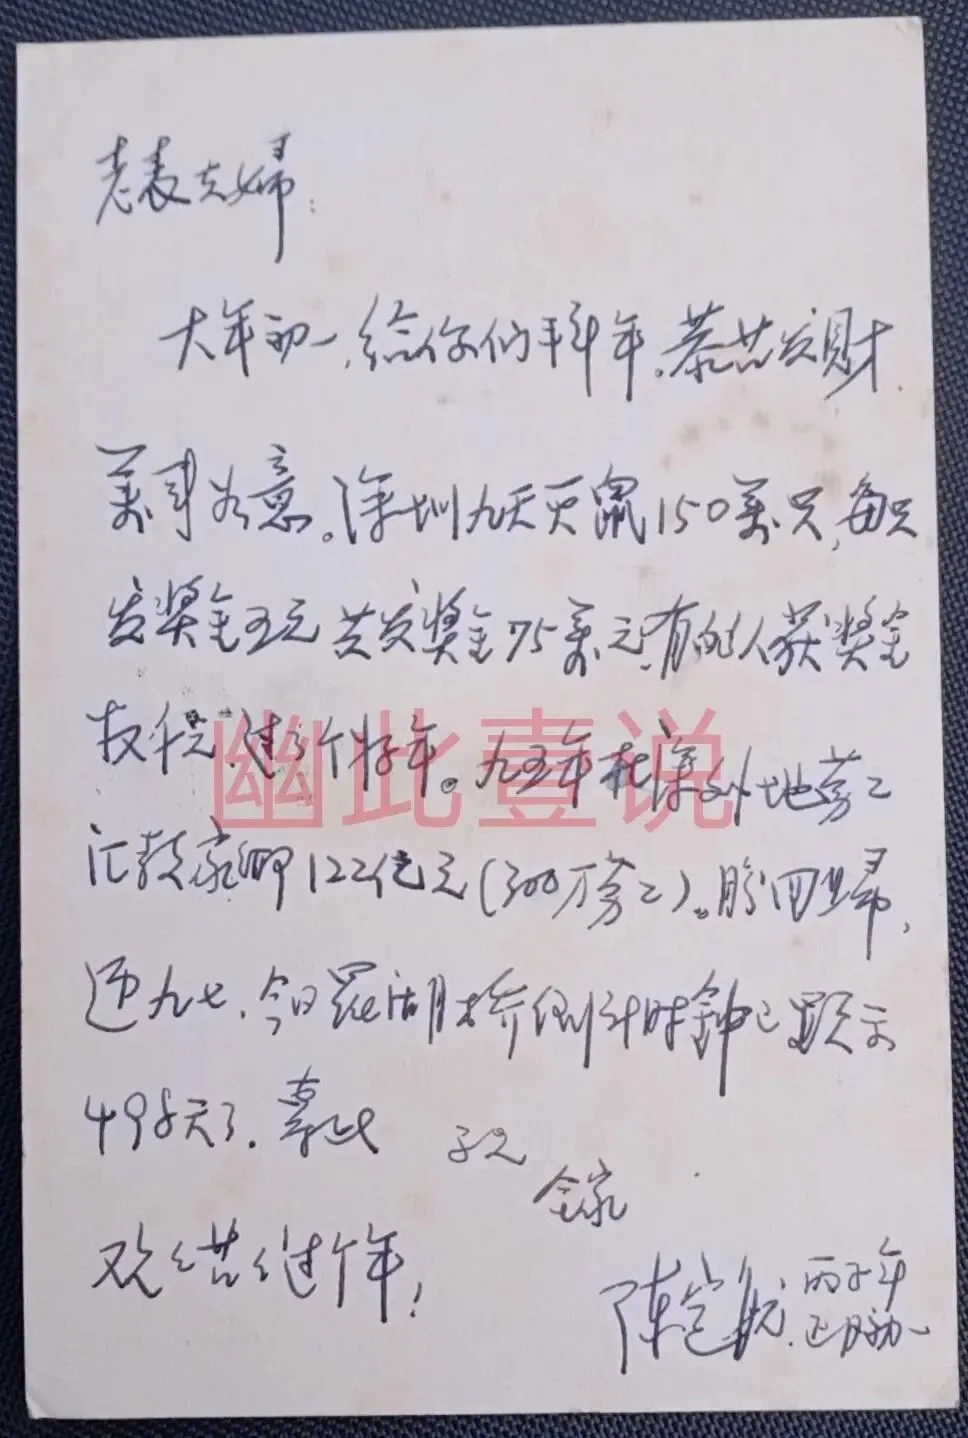 老表夫婦：
大年初一，给你们拜年。恭喜发财
萬事如意。深圳九天灭鼠150萬只，每只
发奖金五元 共发奖金75萬元，有的人获奖金
过个好年。九五年在深外地劳工
汇款家鄉122亿元(300万劳工)。盼回歸，
迎九七，今日罗湖桥倒计时鐘已顕示
498天了。專此 祝
全家
欢欢喜喜过个年！
陈 丙子年
正月初一
幽此壹说